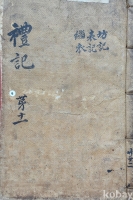 禮記
第十一
坊記
表記
緇衣
kobay